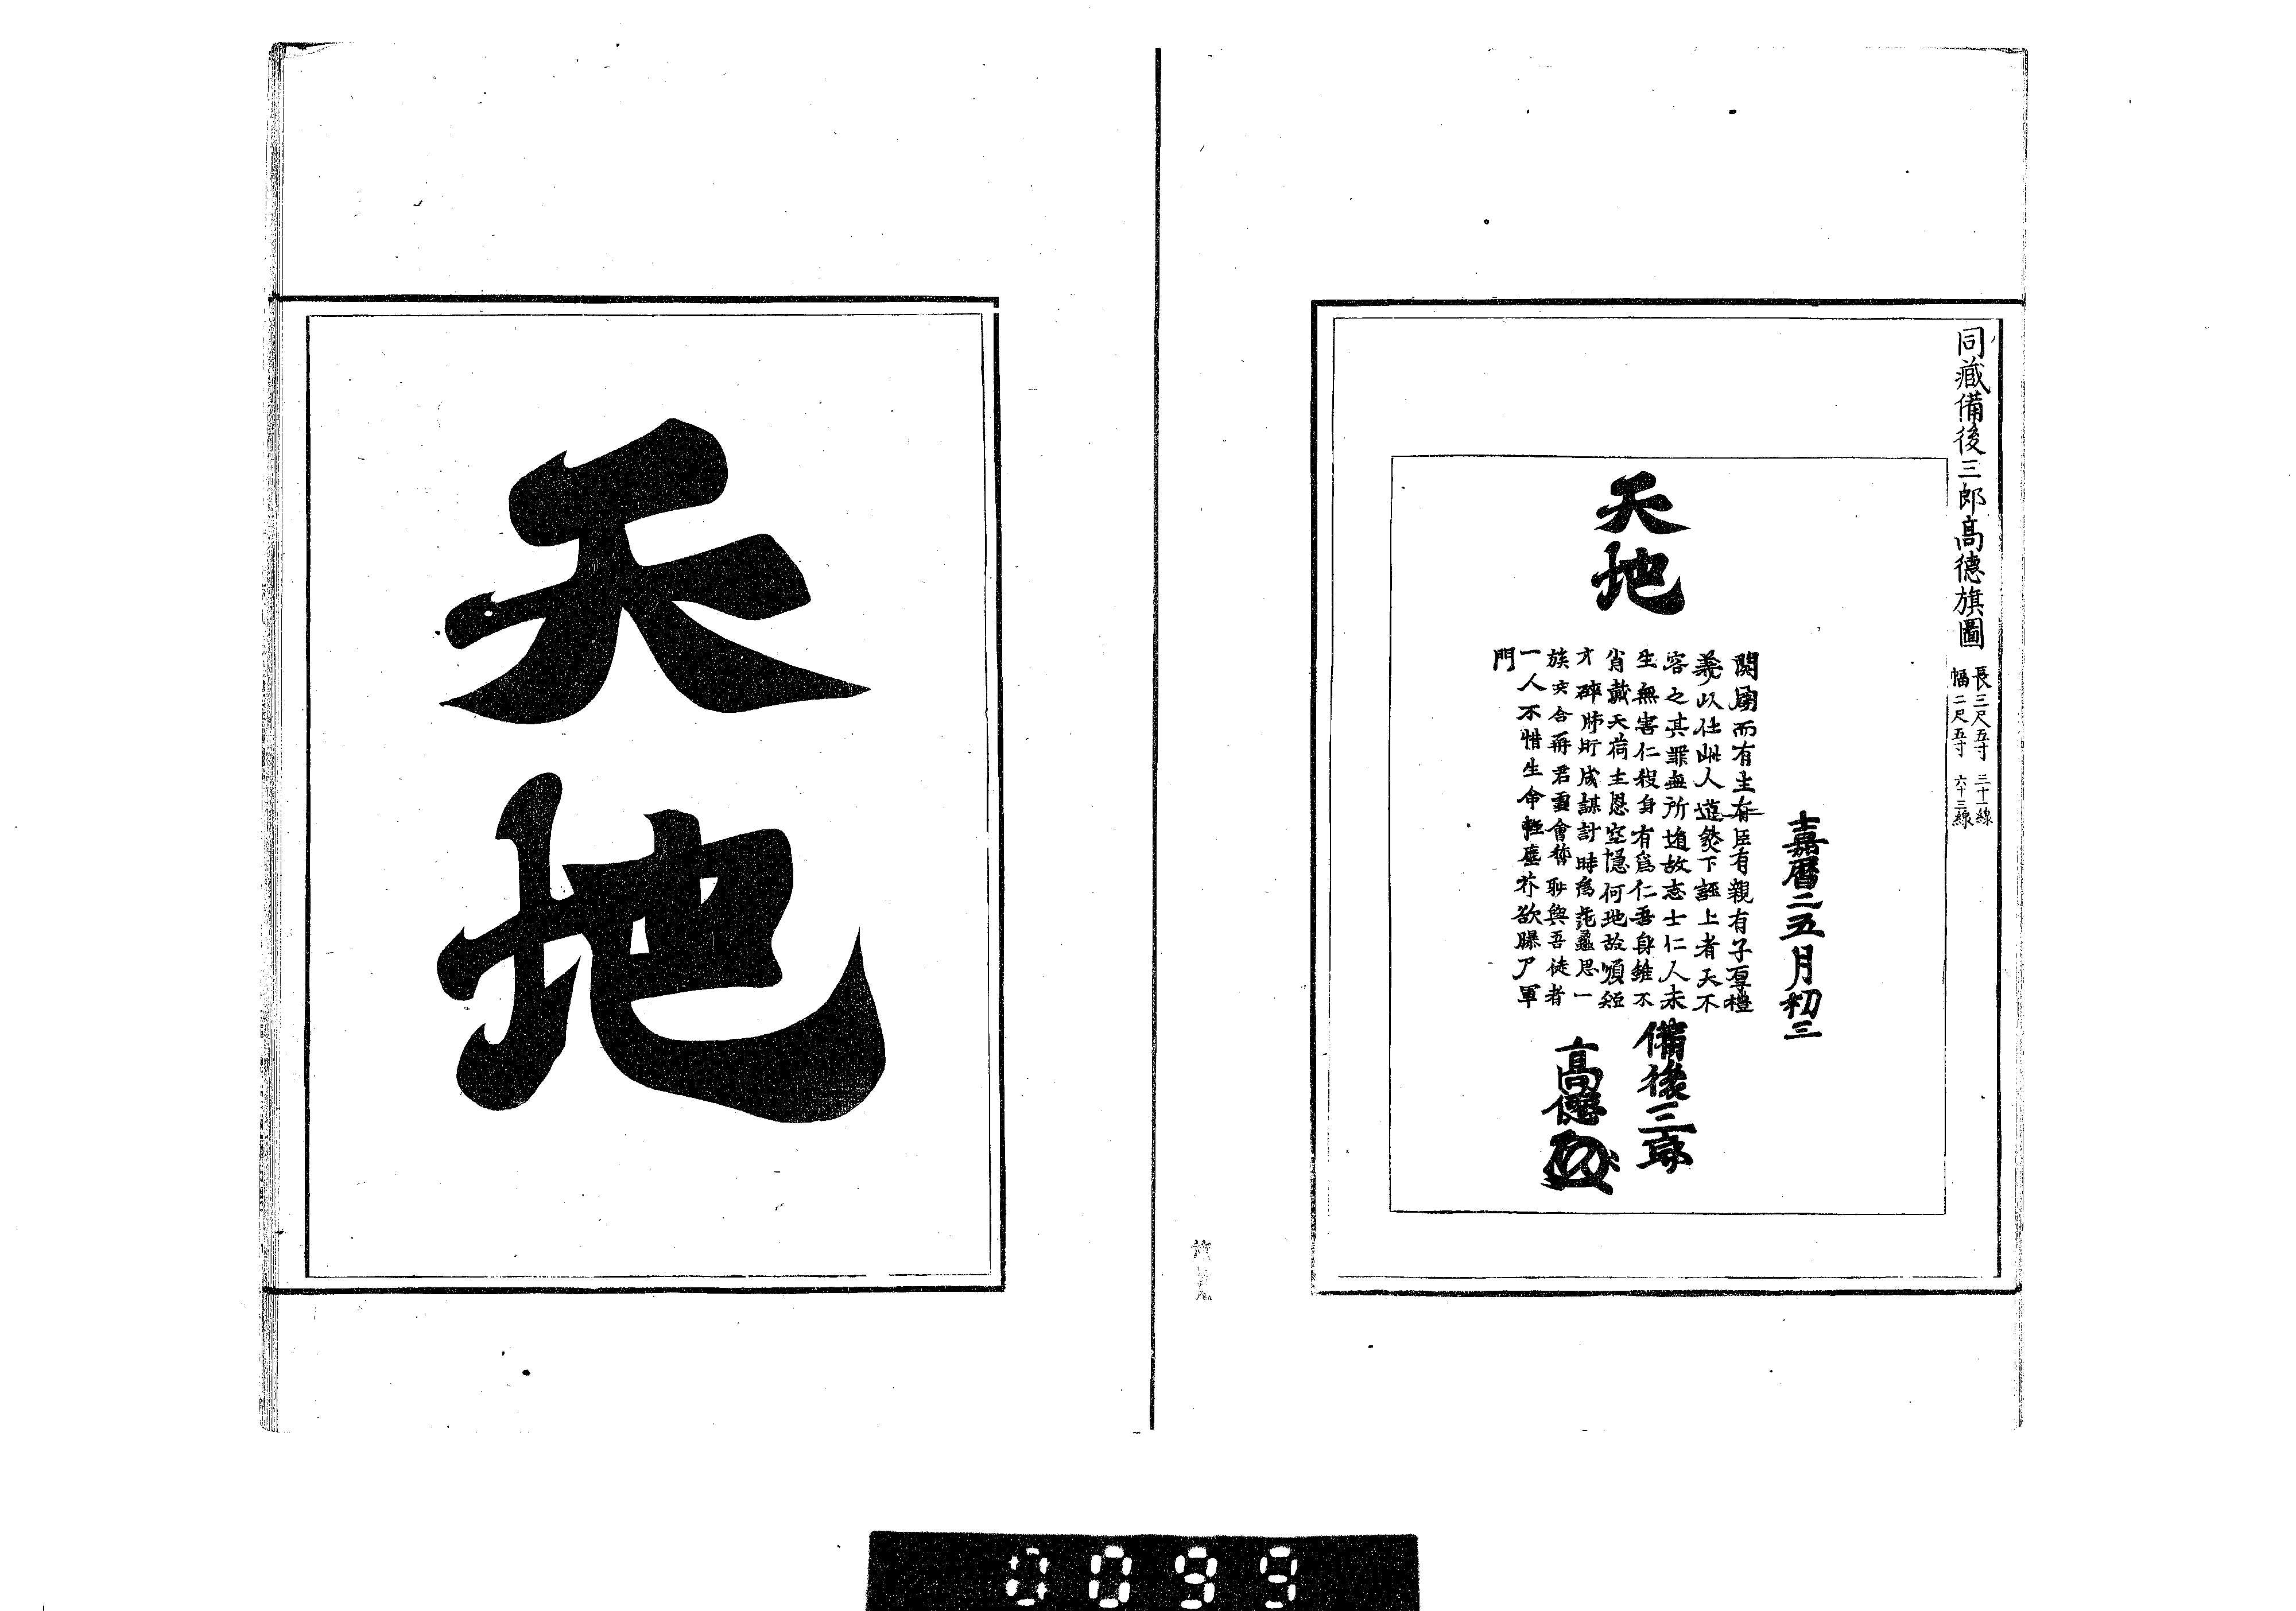 同藏備後三郎高德旗圖
長三尺五寸 三十一線
幅二尺五寸 六十三線
嘉曆二五月初三
天地
闢而有主有臣有親有子厚禮
義以仕此人道然下誣上者天不
容之其罪無所逃故志士仁人未
生無害仁殺身有為仁吾身雖不
肖戴天荷主恩空隱何地故順短
才碎肺肝成謀計時為思一
族再君雪會稽耻與吾徒者
一人不惜生命輕塵芥欲曝尸軍
門
備後三郎
高德
天
地
0099